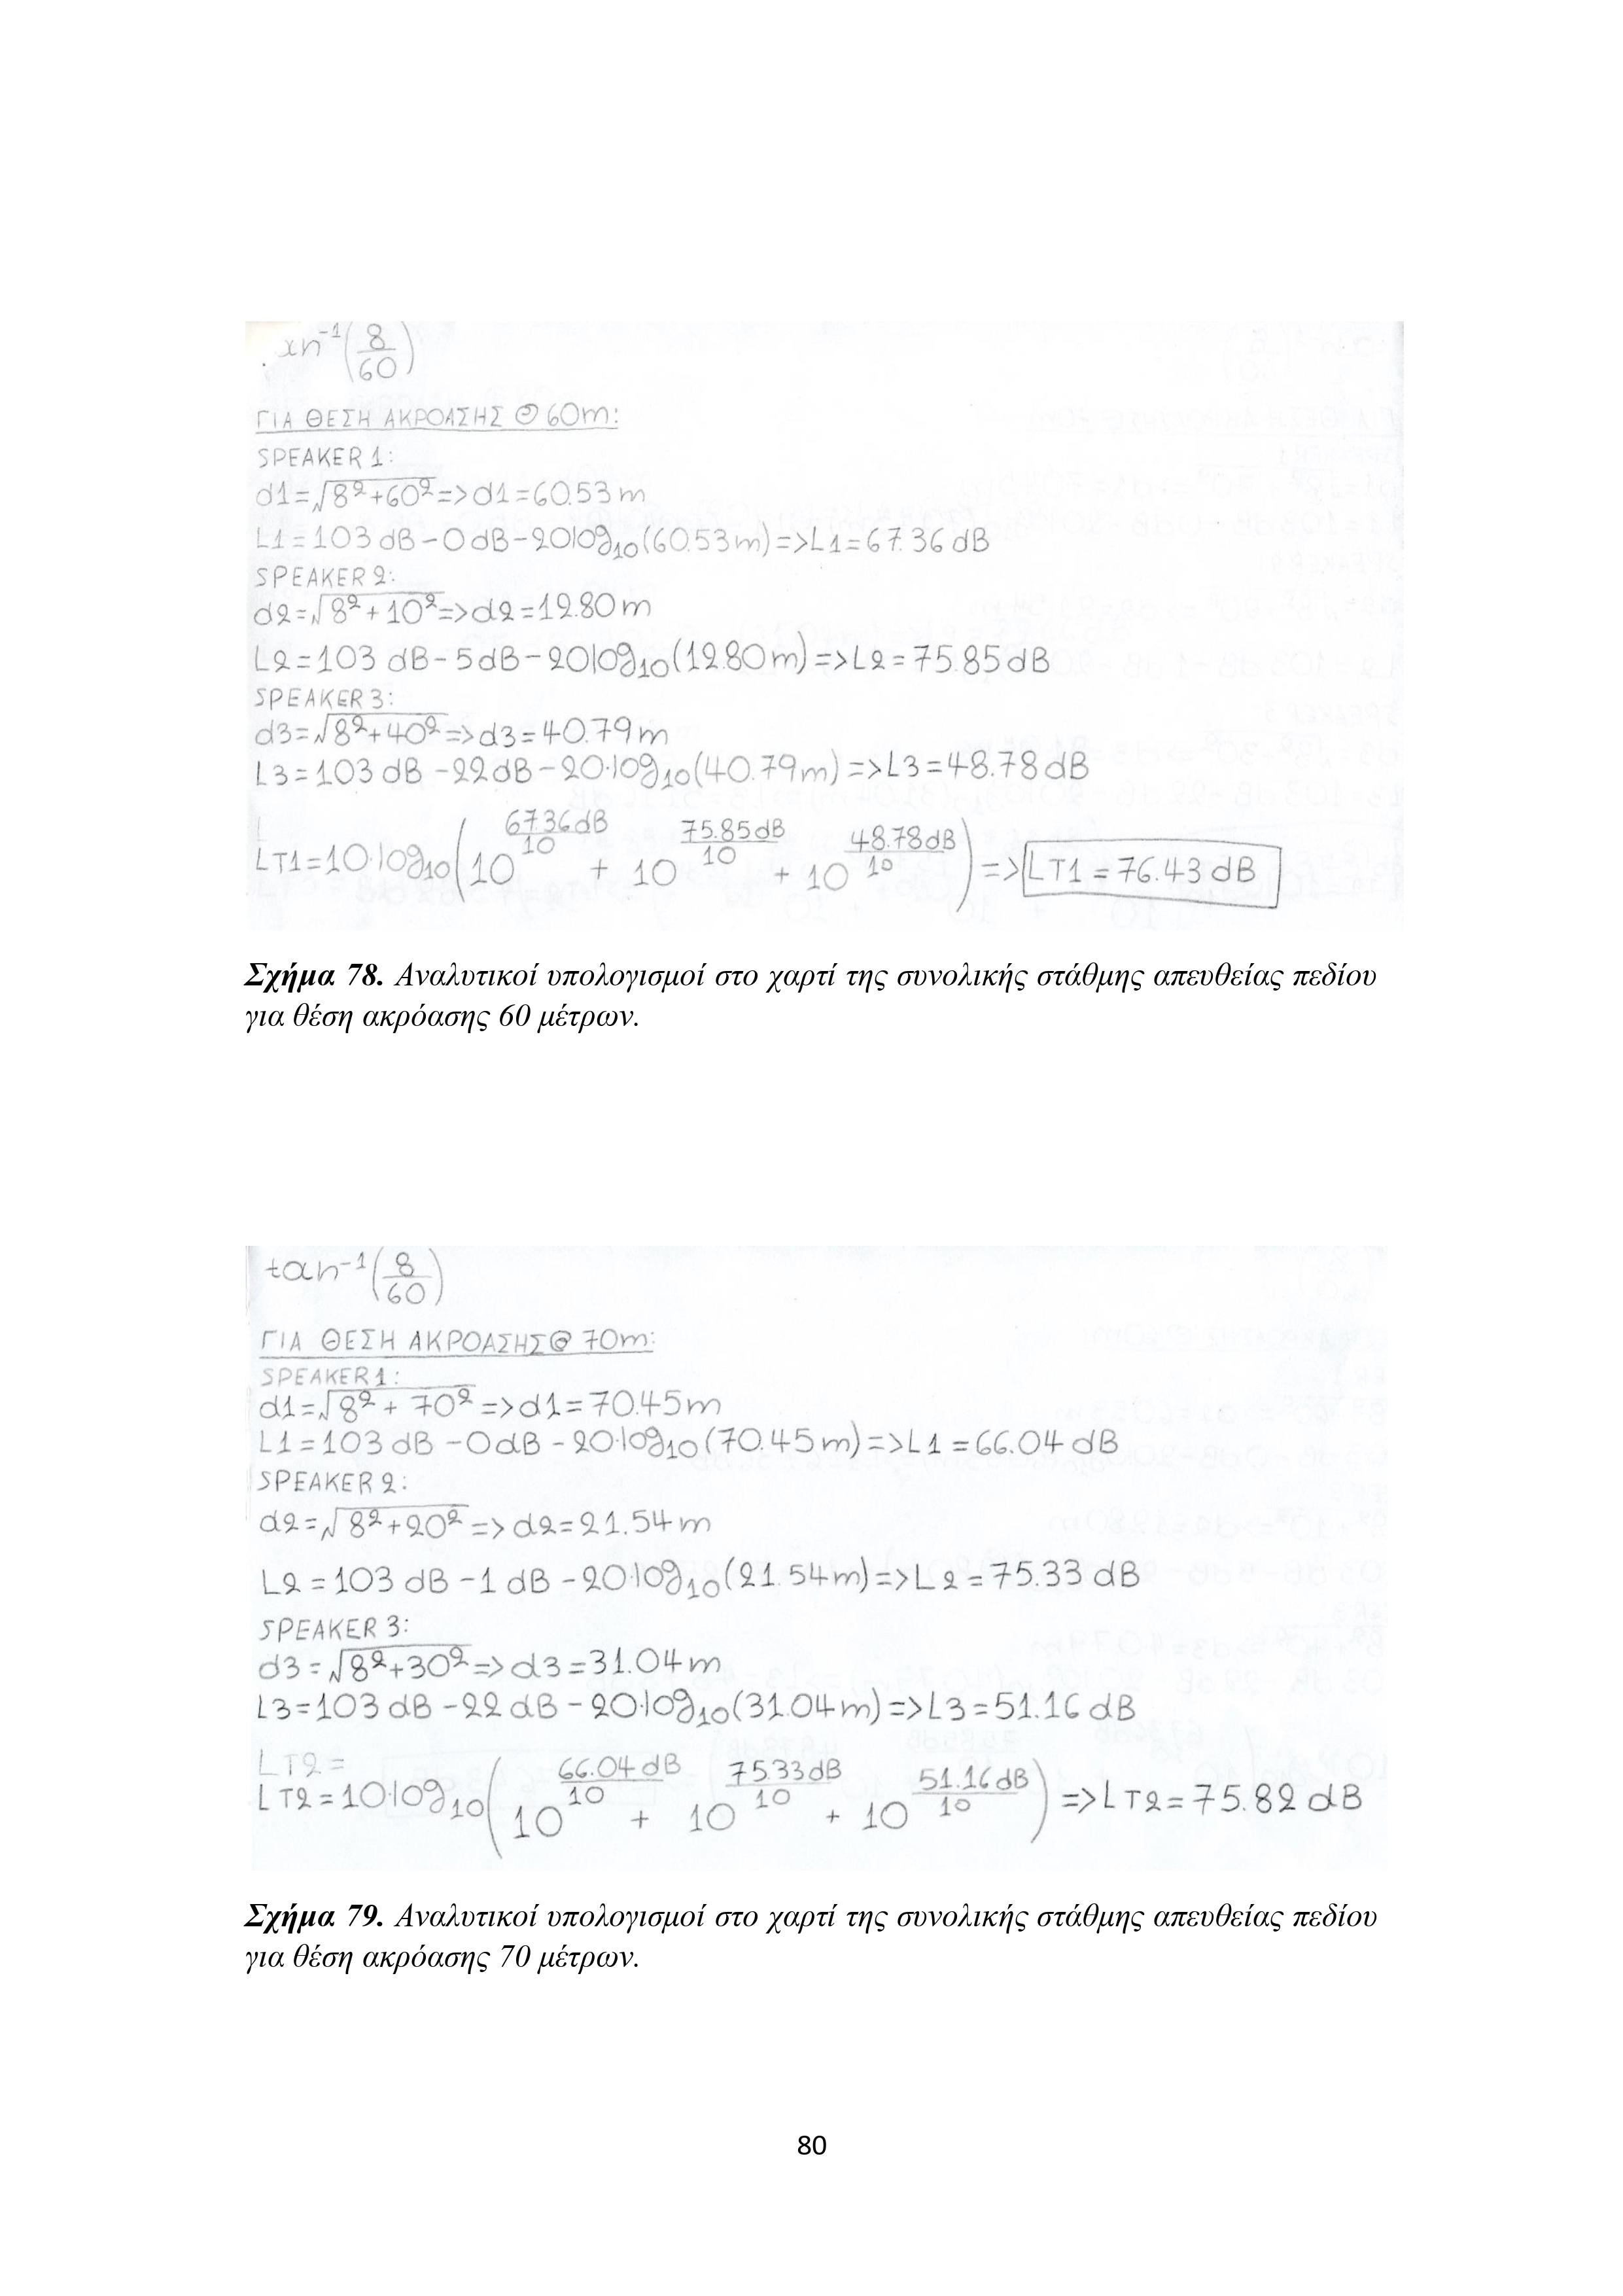 tan⁻¹(8/60)
ΓΙΑ ΘΕΣΗ ΑΚΡΟΑΣΗΣ @ 60m:
SPEAKER 1:
d1=√(8²+60²)=>d1=60.53m
L1=103dB-0dB-20log₁₀(60.53m)=>L1=67.36dB
SPEAKER 2:
d2=√(8²+10²)=>d2=12.80m
L2=103 dB-5dB-20log₁₀(12.80m)=>L2=75.85dB
SPEAKER 3:
d3=√(8²+40²)=>d3=40.79m
L3=103dB-22dB-20·log₁₀(40.79m)=>L3=48.78dB
LT1=10·log₁₀(10^(67.36dB/10) + 10^(75.85dB/10) + 10^(48.78dB/10))=>LT1=76.43 dB
Σχήμα 78. Αναλυτικοί υπολογισμοί στο χαρτί της συνολικής στάθμης απευθείας πεδίου
για θέση ακρόασης 60 μέτρων.
tan⁻¹(8/60)
ΓΙΑ ΘΕΣΗ ΑΚΡΟΑΣΗΣ@ 70m:
SPEAKER1:
d1=√(8²+70²)=>d1=70.45m
L1=103dB-0dB-20·log₁₀(70.45m)=>L1=66.04dB
SPEAKER 2:
d2=√(8²+20²)=>d2=21.54m
L2=103dB-1dB-20·log₁₀(21.54m)=>L2=75.33 dB
SPEAKER 3:
d3=√(8²+30²)=>d3=31.04m
L3=103dB-22dB-20·log₁₀(31.04m)=>L3=51.16dB
LT2=
LT2=10·log₁₀(10^(66.04dB/10) + 10^(75.33dB/10) + 10^(51.16dB/10))=>LT2=75.82 dB
Σχήμα 79. Αναλυτικοί υπολογισμοί στο χαρτί της συνολικής στάθμης απευθείας πεδίου
για θέση ακρόασης 70 μέτρων.
80